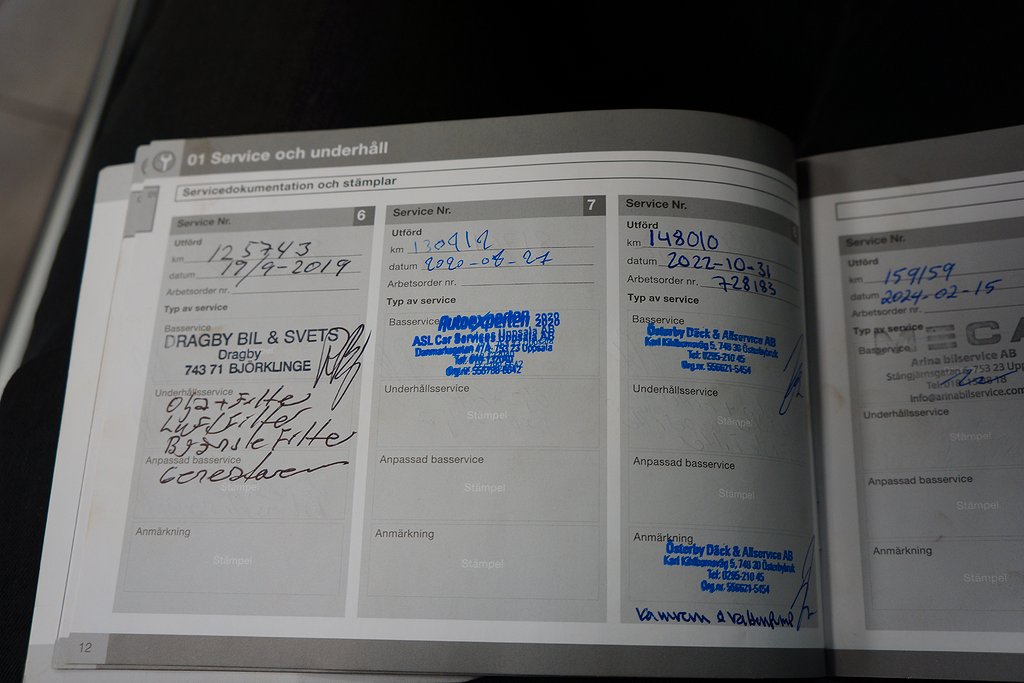 01 Service och underhåll
Servicedokumentation och stämplar
Service Nr. 6
Utförd
km 125743
datum 19/9-2019
Arbetsorder nr.
Typ av service
Basservice
DRAGBY BIL & SVETS
Dragby
743 71 BJÖRKLINGE
Underhållsservice
Olja + Filter
Luftfilter
Bränslefilter
Anpassad basservice
Stämpel
Anmärkning
Stämpel
Service Nr. 7
Utförd
km
datum 2020-08-27
Arbetsorder nr.
Typ av service
Basservice
Autoexperten 2020
ASL Car Services Uppsala AB
753 23 Uppsala
Underhållsservice
Stämpel
Anpassad basservice
Stämpel
Anmärkning
Stämpel
Service Nr.
Utförd
km 148010
datum 2022-10-31
Arbetsorder nr. 728183
Typ av service
Basservice
Österby Däck & Allservice AB
Karl Kihlbomsväg 5, 748 30 Österbybruk
Tel: 0295-210 45
Org.nr. 556621-5454
Underhållsservice
Stämpel
Anpassad basservice
Stämpel
Anmärkning
Österby Däck & Allservice AB
Karl Kihlbomsväg 5, 748 30 Österbybruk
Tel: 0295-210 45
Org.nr. 556621-5454
12
Service Nr.
Utförd
km 159159
datum 2024-02-15
Arbetsorder nr.
Typ av service
Basservice
MECA
Arina bilservice AB
Stångjärnsgatan 753 23 Upp
Info@arinabilservice.com
Underhållsservice
Stämpel
Anpassad basservice
Stämpel
Anmärkning
Stämpel